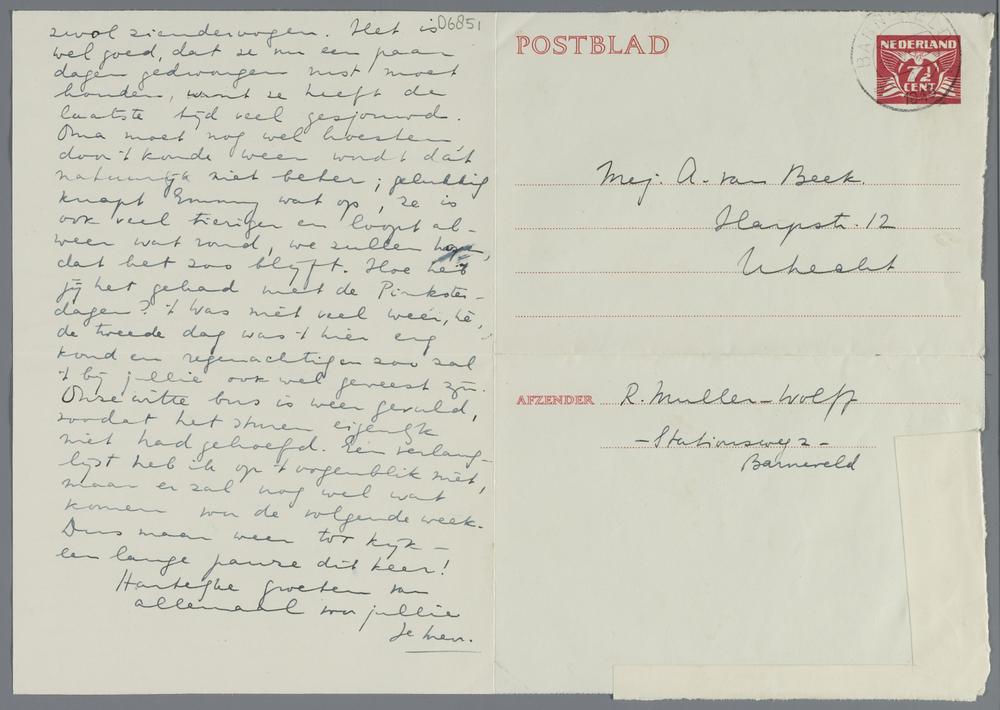 D6851
zwol zienderoogen. Het is
wel goed, dat ze nu een paar
dagen gedwongen rust moet
houden, want ze heeft de
laatste tijd veel gesjouwd.
Oma moet nog wel hoesten
door 't koude weer wordt dat
natuurlijk niet beter; gelukkig
knapt Emmy wat op, ze is
ook veel tieriger en loopt al-
weer wat rond, we zullen hopen,
dat het zoo blijft. Hoe heb
jij het gehad met de Pinkster-
dagen? 't Was niet veel weer, hè,
de tweede dag was 't hier erg
koud en regenachtig en zoo zal
't bij jullie ook wel geweest zijn.
Onze witte bus is weer gevuld,
zoodat het sturen eigenlijk
niet had gehoefd. Een verlang-
lijst heb ik op 't oogenblik niet,
maar er zal nog wel wat
komen voor de volgende week.
Dus maar weer tot kijk –
een lange pauze dit keer!
Hartelijke groeten van
allemaal voor jullie
Je
POSTBLAD
NEDERLAND
7½
CENT
Mej. A. van Beek.
Harpstr. 12
Utrecht
AFZENDER R. Muller-Wolff
– Stationsweg 2 –
Barneveld